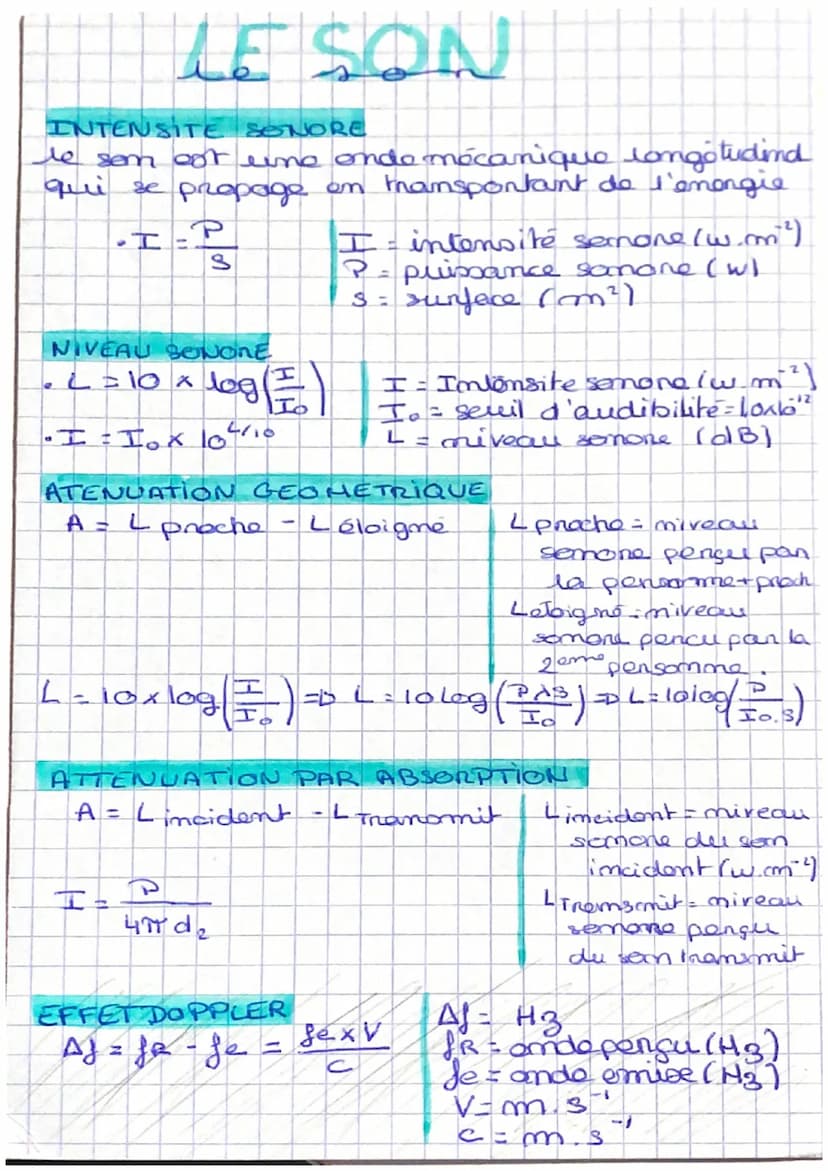 LE SON
le son
INTENSITÉ SONORE
le son est une onde mécanique longitudinal
qui se propage en transportant de l'énergie
• I = P/S
I = intensité sonore (w.m⁻²)
P = puissance sonore (w)
S = surface (m²)
NIVEAU SONORE
• L = 10 x log(I/I₀)
• I = I₀ x 10^L/10
I = Intensite sonore (w.m⁻²)
I₀ = seuil d'audibilité = 1,0x10⁻¹²
L = niveau sonore (dB)
ATENUATION GEOMETRIQUE
A = L proche - L éloigné
L proche = niveau
sonore perçu par
la personne + proch
L eloigné = niveau
sonore percu par la
2eme personne.
L = 10 x log(I/I₀) => L = 10 log(P/S/I₀) => L = 10log(P/I₀.S)
ATTENUATION PAR ABSORPTION
A = L incident - L Transmit
L incident = niveau
sonore du son
incident (w.m⁻²)
I = P/4π d₂
L Transmit = niveau
sonore perçu
du son transmit
EFFET DOPPLER
Δf = fR - fe = fe x V/C
Δf = Hz
fR = onde perçu (Hz)
fe = onde emise (Hz)
V = m.s⁻¹
c = m.s⁻¹